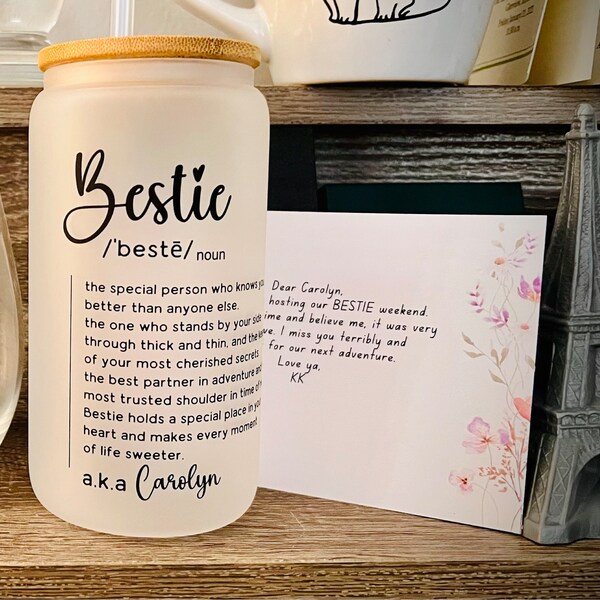 Bestie
/'bestē/ noun
the special person who knows you
better than anyone else.
the one who stands by your side
through thick and thin, and the
of your most cherished secrets
the best partner in adventure and
most trusted shoulder in time of
Bestie holds a special place in your
heart and makes every moment
of life sweeter.
a.k.a Carolyn
Dear Carolyn,
hosting our BESTIE weekend.
and believe me, it was very
I miss you terribly and
for our next adventure.
Love ya,
KK